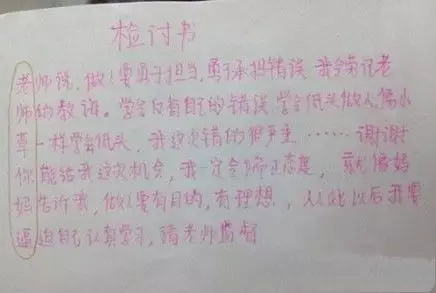 检讨书
老师说,做人要勇于担当,勇于承担错误 我会紧记老
师的教诲。学会反省自己的错误,学会低头做人,像小
草一样学会低头,我这次错的很严重……谢谢
你能给我这次机会,我一定会端正态度,就像妈
妈告诉我,做人要有目的,有理想,从此以后我要
逼迫自己认真学习,请老师监督